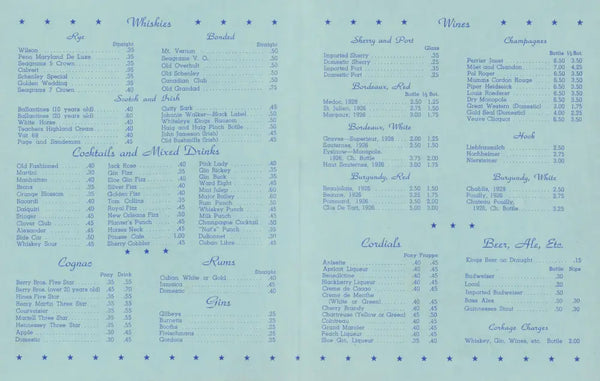 Whiskies
Rye
Straight
Wilson .35
Penn Maryland De Luxe .35
Seagrams 5 Crown .35
Calvert .35
Schenley Special .35
Golden Wedding .35
Seagrams 7 Crown .40
Bonded
Straight
Mt. Vernon .50
Seagrams V. O. .50
Old Overholt .50
Old Schenley .50
Canadian Club .50
Old Grandad .75
Scotch and Irish
Ballantines (10 years old) .40
Ballantines (20 years old) .60
White Horse .40
Teachers Highland Cream .40
Vat 69 .40
Page and Sandeman .45
Cutty Sark .45
Johnnie Walker—Black Label .50
Whiteleys Kings Ransom .50
Haig and Haig Pinch Bottle .50
John Jameson (Irish) .45
Old Bushmills (Irish) .45
Cocktails and Mixed Drinks
Old Fashioned .40
Martini .30
Manhattan .40
Bronx .35
Orange Blossom .35
Bacardi .40
Daiquiri .40
Stinger .45
Clover Club .45
Alexander .45
Side Car .50
Whiskey Sour .45
Jack Rose .40
Gin Fizz .35
Sloe Gin Fizz .40
Silver Fizz .40
Golden Fizz .40
Tom Collins .35
Royal Fizz .45
New Orleans Fizz .50
Planter's Punch .45
Horses Neck .45
Pousse Cafe 1.00
Sherry Cobbler .45
Pink Lady .40
Gin Rickey .35
Gin Buck .40
Ward Eight .45
Mint Julep .60
Major Bailey .60
Rum Punch .50
Whiskey Punch .45
Milk Punch .45
Champagne Cocktail .50
"Nut's" Punch .35
Dubonnet .30
Cuban Libre .45
Cognac
Pony Drink
Berry Bros. Five Star .35 .55
Berry Bros. (over 20 years old) .45 .70
Hines Five Star .35 .55
Remy Martin Three Star .35 .55
Courvoisier .35 .55
Martell Three Star .35 .55
Hennessey Three Star .35 .55
Apple .30 .45
Domestic .30 .45
Rums
Straight
Cuban White or Gold .40
Jamaica .45
Domestic .40
Gins
Gilbeys .35
Burnetts .35
Booths .35
Fleischmans .35
Gordons .35
Wines
Sherry and Port
Glass
Imported Sherry .35
Domestic Sherry .25
Imported Port .35
Domestic Port .25
Bordeaux, Red
Bottle ½ Bot.
Medoc, 1928 2.50 1.25
St. Julien, 1926 2.75 1.50
Margaux, 1928 3.00 1.75
Bordeaux, White
Graves—Superieur, 1928 2.00 1.25
Sauternes, 1928 2.50 1.50
1926, Ch. Bottle 3.75 2.00
Haut Sauternes, 1928 3.00 1.75
Burgundy, Red
Beaujolais, 1926 2.50 1.50
Beaune, 1926 3.25 1.75
Pommard, 1926 3.50 2.00
Clos De Tart, 1926 5.00 3.00
Champagnes
Bottle ½ Bot.
Perrier Jouet 6.50 3.50
Moet and Chandon 7.00 4.25
Pol Roger 6.50 3.50
Mumms Cordon Rouge 6.50 3.50
Piper Heidseick 6.50 3.50
Louis Roederer 6.50 3.50
Dry Monopole 6.50 3.50
Great Western (Domestic) 3.00 1.75
Gold Seal (Domestic) 4.00 2.25
Veuve Clicquot 6.50 3.50
Hock
Liebfraumilch 2.50
Hochheimer 3.75
Niersteiner 3.00
Burgundy, White
Chablis, 1928 2.50
Pouilly, 1928 2.75
Chateau Pouilly,
1928, Ch. Bottle 3.25
Cordials
Pony Frappe
Anisette .40 .45
Apricot Liqueur .40 .45
Benedictine .40 .45
Blackberry Liqueur .40 .45
Creme de Cacao .40 .45
Creme de Menthe
(White or Green) .40 .50
Cherry Brandy .40 .45
Chartreuse (Yellow or Green) .45 .50
Cointreau .40 .45
Grand Marnier .40 .45
Peach Liqueur .40 .45
Sloe Gin, Liqueur .35 .40
Beer, Ale, Etc.
Kings Beer on Draught .15
Bottle
Budweiser .30
Local .20
Imported Budweiser .50
Bass Ales .50 .30
Guinnesses Stout .50 .30
Corkage Charges
Whiskey, Gin, Wines, etc. Bottle 2.00